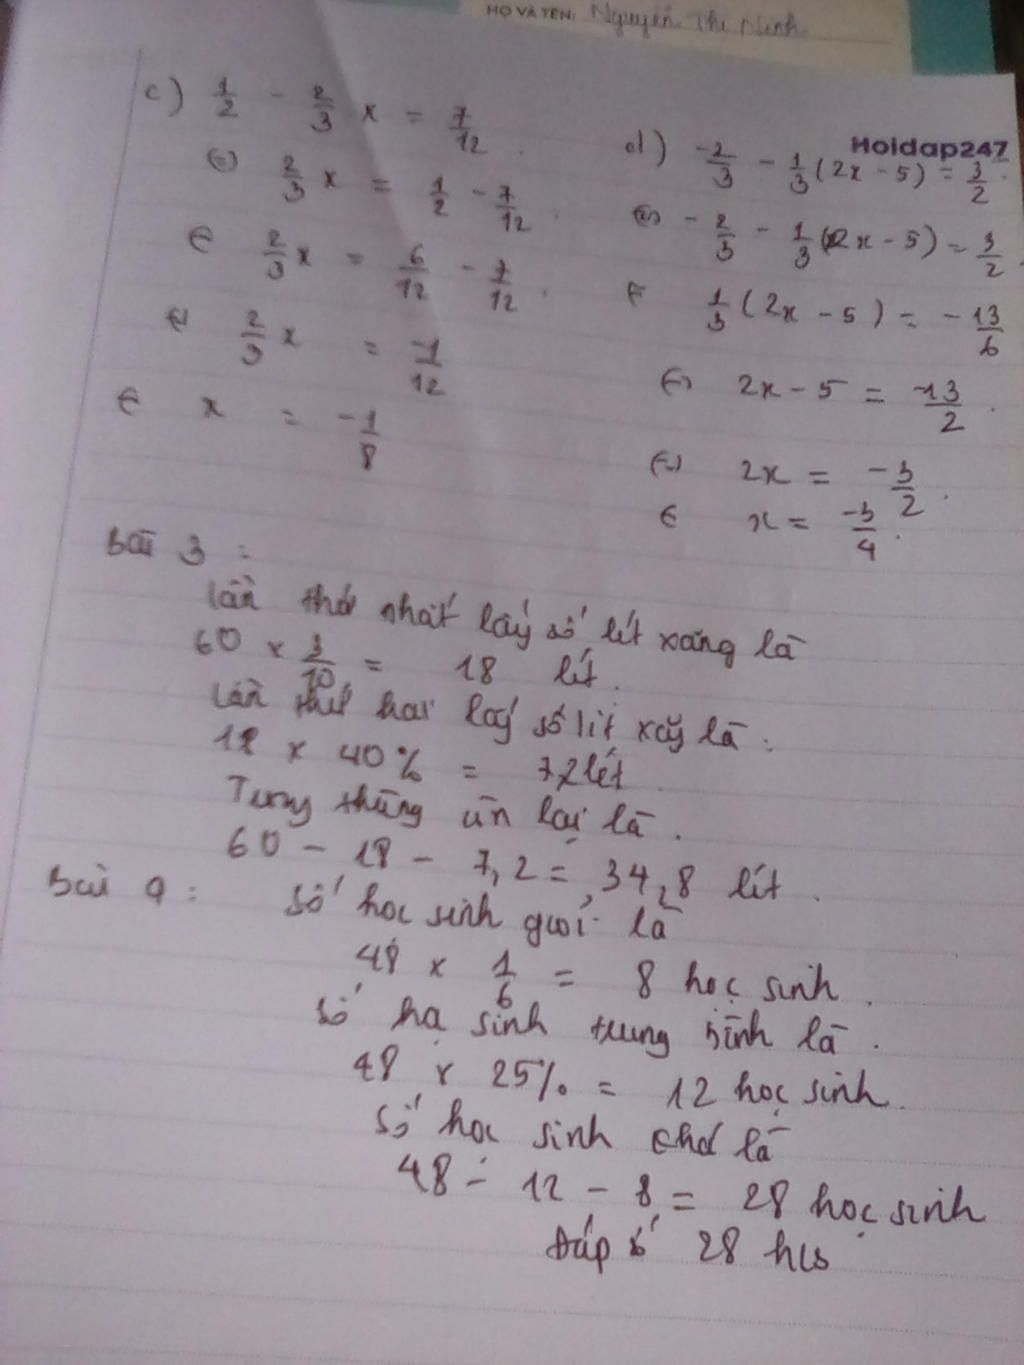 HỌ VÀ TÊN: Nguyễn Thị Ninh
Hoidap247
c) 1/2 - 2/3 x = 7/12
(=) 2/3 x = 1/2 - 7/12
2/3 x = 6/12 - 7/12
2/3 x = -1/12
x = -1/8
d) -2/3 - 1/3 (2x - 5) = 3/2
(=) - 2/3 - 1/3 (2x - 5) = 3/2
1/3 (2x - 5) = - 13/6
(=) 2x - 5 = -13/2
2x = -3/2
x = -3/4
Bài 3 :
Lần thứ nhất lấy số lít xăng là
60 x 3/10 = 18 lít.
Lần thứ hai lấy số lít xăng là :
18 x 40% = 7,2 lít
Trong thùng còn lại là .
60 - 18 - 7,2 = 34,8 lít .
Bài 4 : Số học sinh giỏi là
48 x 1/6 = 8 học sinh .
Số học sinh trung bình là .
48 x 25% = 12 học sinh.
Số học sinh khá là
48 - 12 - 8 = 28 học sinh
Đáp số 28 hcs